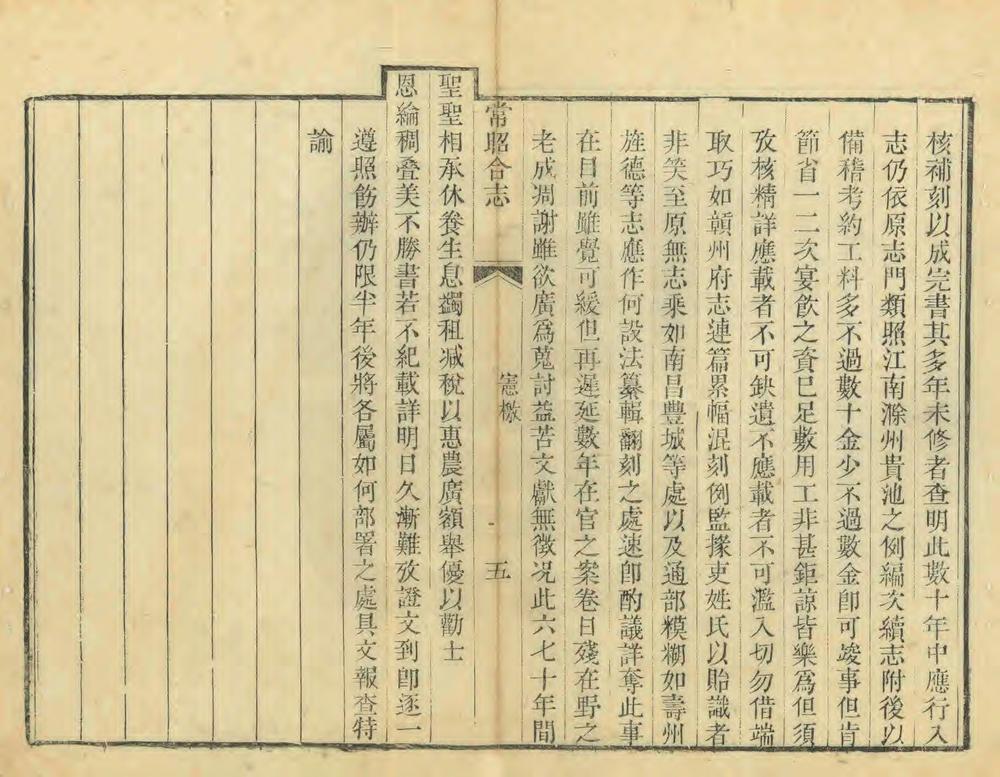 核補刻以成完書其多年未修者查明此數十年中應行入
志仍依原志門類照江南滁州貴池之例編次續志附後以
備稽考約工料多不過數十金少不過數金卽可竣事但肯
節省一二次宴飮之資已足敷用工非甚鉅諒皆樂爲但須
攷核精詳應載者不可缺遺不應載者不可濫入切勿借端
取巧如贛州府志連篇累幅混刻例監掾吏姓氏以貽識者
非笑至原無志乘如南昌豐城等處以及通部糢糊如壽州
旌德等志應作何設法纂輯翻刻之處速卽酌議詳奪此事
在目前雖覺可緩但再遲延數年在官之案卷日殘在野之
老成凋謝雖欲廣爲蒐討益苦文獻無徵况此六七十年間
常昭合志
憲檄
五
聖聖相承休養生息蠲租减稅以惠農廣額舉優以勸士
恩綸稠叠美不勝書若不紀載詳明日久漸難攷證文到卽逐一
遵照飭辦仍限半年後將各屬如何部署之處具文報查特
諭